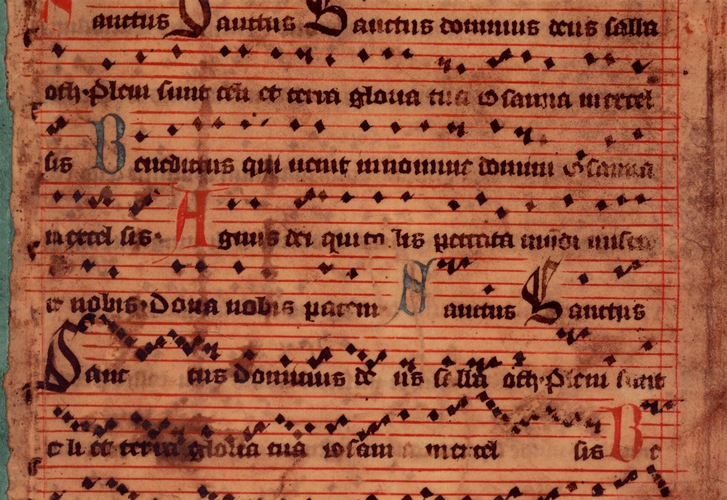 Sanctus Sanctus Sanctus dominus deus saba
oth. Pleni sunt celi et terra gloria tua Osanna in excel
sis Benedictus qui uenit in nomine domini Osanna
in excel sis. Agnus dei qui tollis peccata mundi misere
nobis. Dona nobis pacem Sanctus Sanctus
Sanc tus Dominus de us saba oth. Pleni sunt
et terra gloria tua osann a in excel sis Be